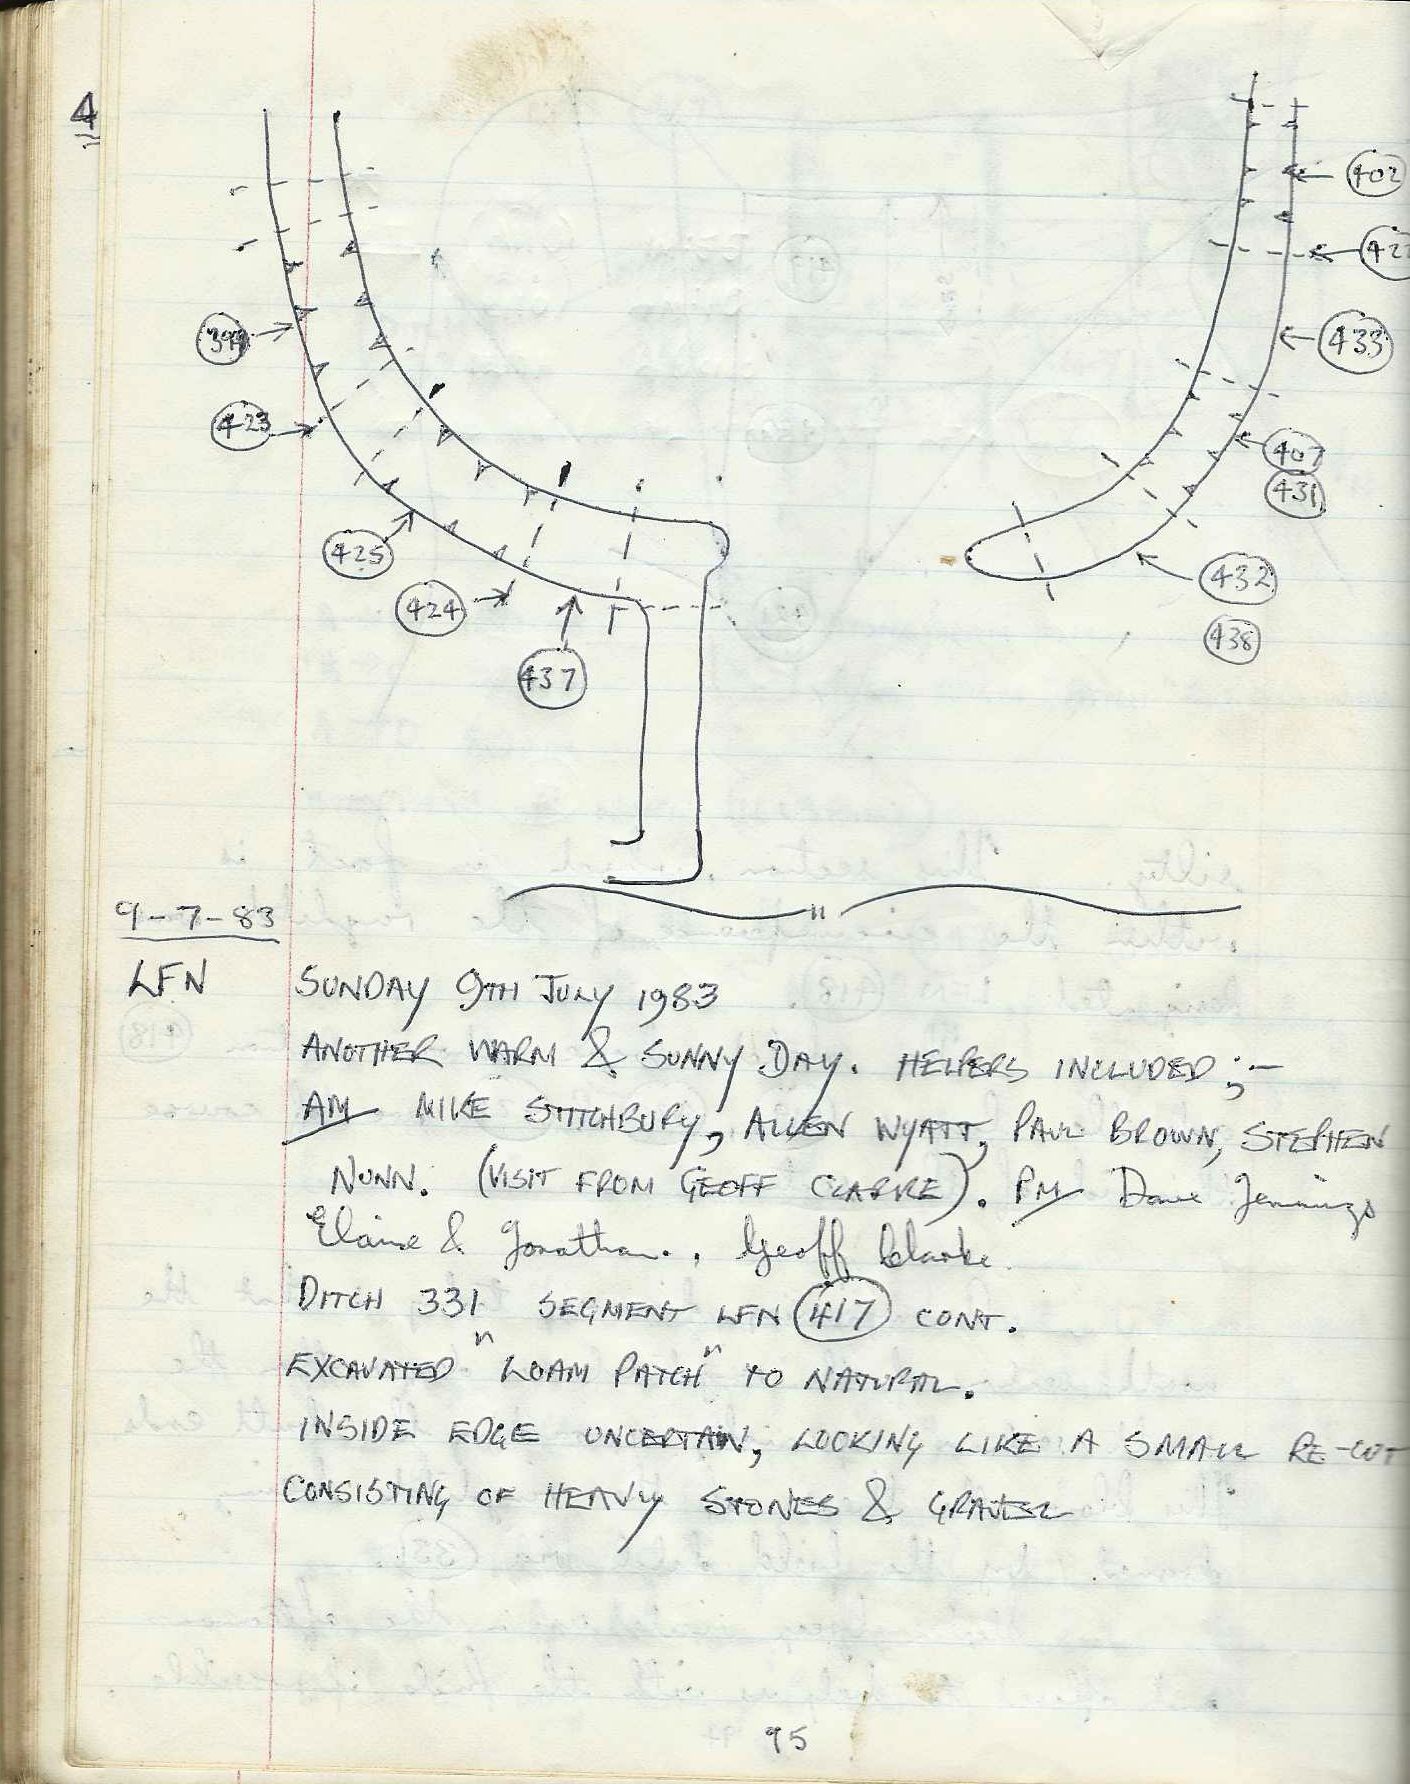 4
402
433
423
407
431
425
432
424
438
437
9-7-83
LFN SUNDAY 9TH JULY 1983
ANOTHER WARM & SUNNY DAY. HELPERS INCLUDED ;-
AM MIKE STITCHBURY, ALLEN WYATT, PAUL BROWN, STEPHEN
NUNN. (VISIT FROM GEOFF CLARKE). PM Dave Jennings
Elaine & Jonathan., Geoff Clarke.
DITCH 331 SEGMENT LFN 417 CONT.
EXCAVATED "LOAM PATCH" TO NATURAL.
INSIDE EDGE UNCERTAIN, LOOKING LIKE A SMALL RE-CUT
CONSISTING OF HEAVY STONES & GRAVEL
95